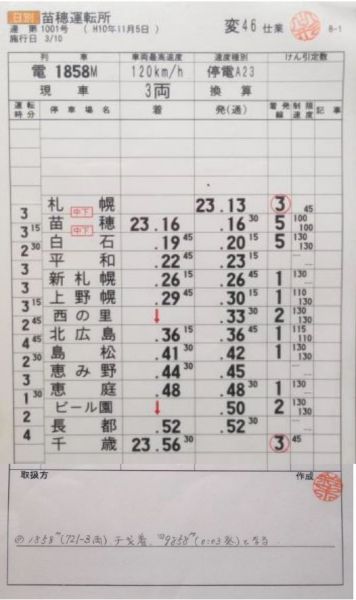 日別 苗穂運転所 変46 仕業 8-1
達 第 1001号 (H10年11月5日)
施行日 3/10
列車 車両最高速度 速度種別 けん引定数
電 1858M 120km/h 停電A23
現車 3両 換算
運転時分 停車場名 着 発(通) 着発線 制限速度 記事
札幌 23.13 3 45
3 中下
苗穂 23.16 .16 30 5 100 100
3 15 中下
白石 .19 45 .20 15 5 130 130
2 30
平和 .22 45 .23 15
3
新札幌 .26 15 .26 45 1 130
3
上野幌 .29 45 .30 15 1 110 130
3 15
西の里 ↓ .33 30 2 130 130
2 45
北広島 .36 15 .36 45 1 115 110
4 45
島松 .41 30 .42 1 130 130
2 30
恵み野 .44 30 .45
3
恵庭 .48 .48 30 1 130
1 30
ビール園 ↓ .50 2 130 130
2
長都 .52 .52 30
4
千歳 23.56 30 3 45
取扱方 作成
1858M(721-3両) 千歳着、9858M(0:03発)となる